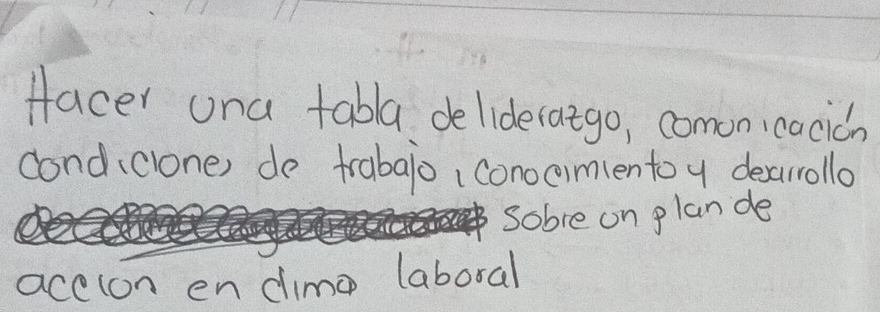 Hacer una tabla de liderazgo, comunicación
condiciones de trabajo, conocimiento y desarrollo
sobre un plan de
accion en clima laboral